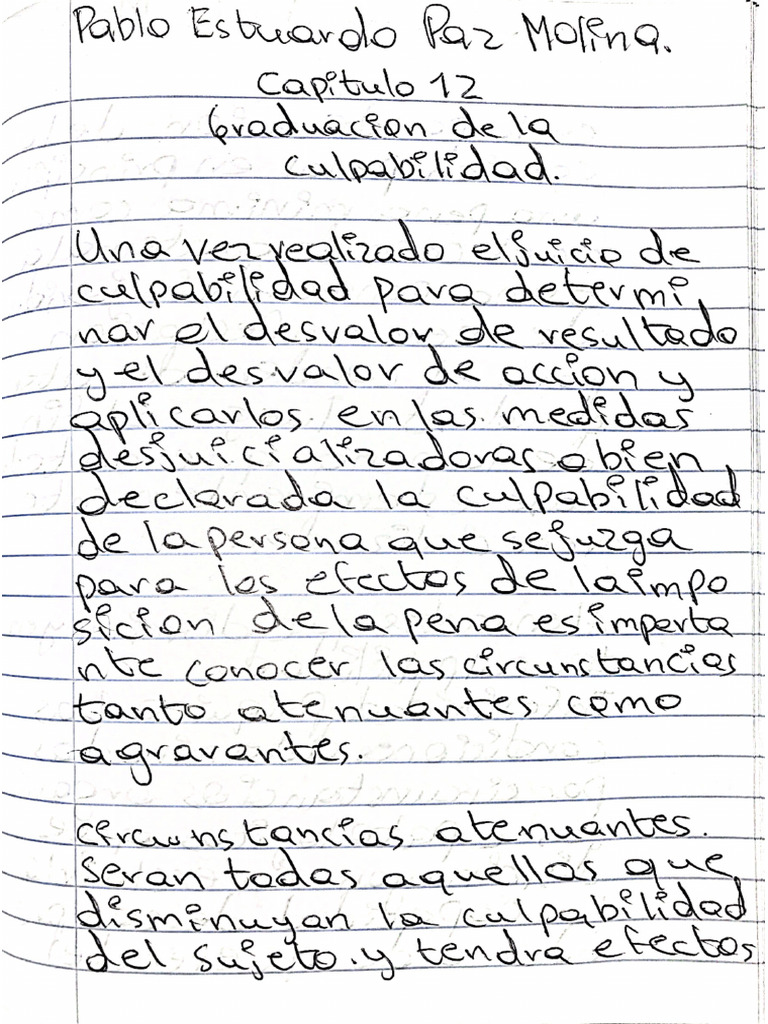 Pablo Estuardo Paz Molina.
Capitulo 12
Graduacion de la
culpabilidad.
Una vez realizado el juicio de
culpabilidad para determi
nar el desvalor de resultado
y el desvalor de accion y
aplicarlos en las medidas
desjuicializadoras o bien
declarada la culpabilidad
de la persona que se juzga
para los efectos de la impo
sicion de la pena es importa
nte conocer las circunstancias
tanto atenuantes como
agravantes.
circunstancias atenuantes.
Seran todas aquellas que
disminuyan la culpabilidad
del sujeto. y tendra efectos